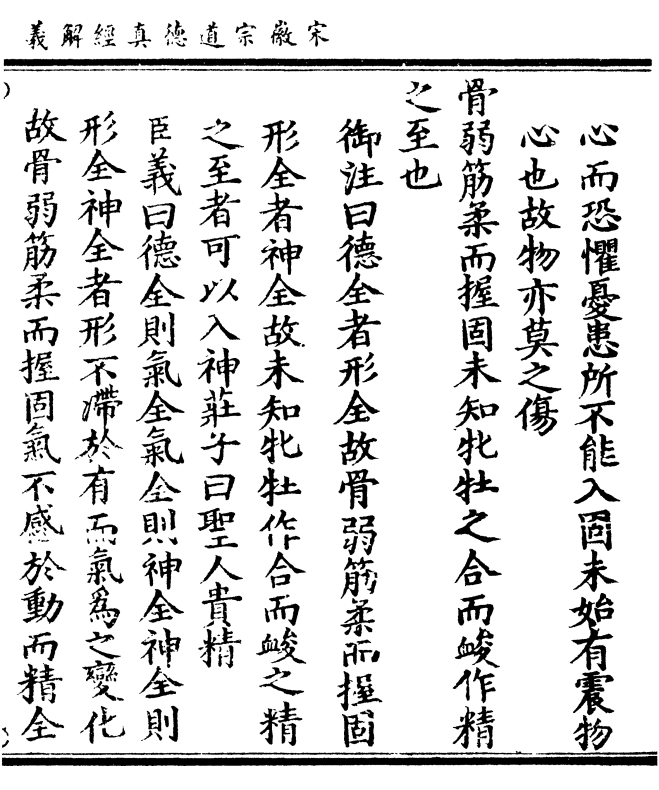 宋徽宗道德真經解義
心而恐懼憂患所不能入固未始有震物
心也故物亦莫之傷
骨弱筋柔而握固未知牝牡之合而䘒作精
之至也
御注曰德全者形全故骨弱筋柔而握固
形全者神全故未知牝牡作合而䘒之精
之至者可以入神莊子曰聖人貴精
臣義曰德全則氣全氣全則神全神全則
形全神全者形不滯於有而氣爲之變化
故骨弱筋柔而握固氣不感於動而精全